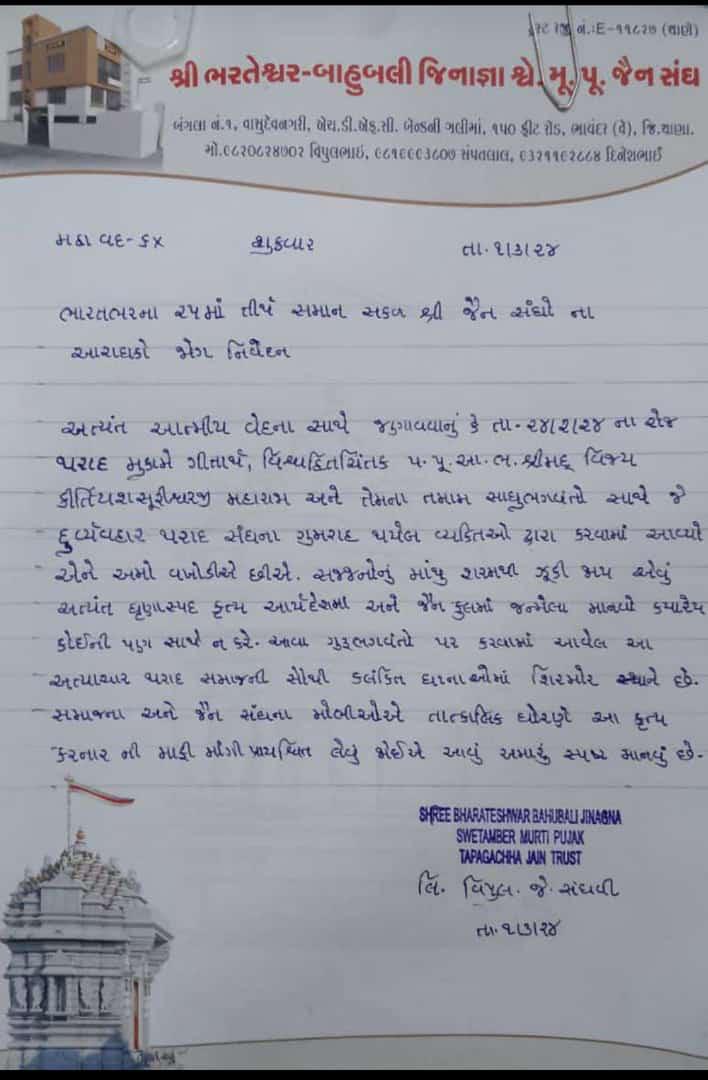 ટ્રસ્ટ રજી નં.:E-૧૧૮૨૭ (થાણે)
શ્રી ભરતેશ્વર-બાહુબલી જિનાજ્ઞા શ્વે. મૂ. પૂ. જૈન સંઘ
બંગલા નં.૧, વાસુદેવનગરી, એચ.ડી.એફ.સી. બેન્કની ગલીમાં, ૧૫૦ ફીટ રોડ, ભાયંદર (વે), જિ.થાણા.
મો.૯૮૨૦૮૨૪૭૦૨ વિપુલભાઇ, ૯૮૧૯૯૯૩૮૦૭ સંપતલાલ, ૯૩૨૧૧૯૨૮૮૪ દિનેશભાઈ
મહા વદ-૬x શુક્રવાર તા.૧/૩/૨૪
ભારતભરના ૨૫માં તીર્થ સમાન સકળ શ્રી જૈન સંઘો ના
આરાધકો જોગ નિવેદન
અત્યંત આત્મીય વેદના સાથે જણાવવાનું કે તા.૨૪/૨/૨૪ ના રોજ
થરાદ મુકામે ગીતાર્થ, વિશ્વહિતચિંતક પ.પૂ.આ.ભ.શ્રીમદ્ વિજય
કીર્તિયશસૂરીશ્વરજી મહારાજા અને તેમના તમામ સાધુભગવંતો સાથે જે
દુર્વ્યવહાર થરાદ સંઘના ગુમરાહ થયેલ વ્યકિતઓ દ્વારા કરવામાં આવ્યો
એને અમો વખોડીએ છીએ. સજ્જનોનું માથુ શરમથી ઝૂકી જાય એવું
અત્યંત ઘૃણાસ્પદ કૃત્ય આર્યદેશમા અને જૈન કુલમાં જન્મેલા માનવો કયારેય
કોઈની પણ સાથે ન કરે. આવા ગુરૂભગવંતો પર કરવામાં આવેલ આ
અત્યાચાર થરાદ સમાજની સૌથી કલંકિત ઘટનાઓમાં શિરમોર સ્થાને છે.
સમાજના અને જૈન સંઘના મોભીઓએ તાત્કાલિક ધોરણે આ કૃત્ય
કરનાર ની માફી માંગી પ્રાયશ્ચિત લેવું જોઈએ આવું અમારું સ્પષ્ટ માનવું છે.
SHREE BHARATESHWAR BAHUBALI JINAGNA
SWETAMBER MURTI PUJAK
TAPAGACHHA JAIN TRUST
લિ. વિપુલ. જે. સંઘવી
તા.૧/૩/૨૪